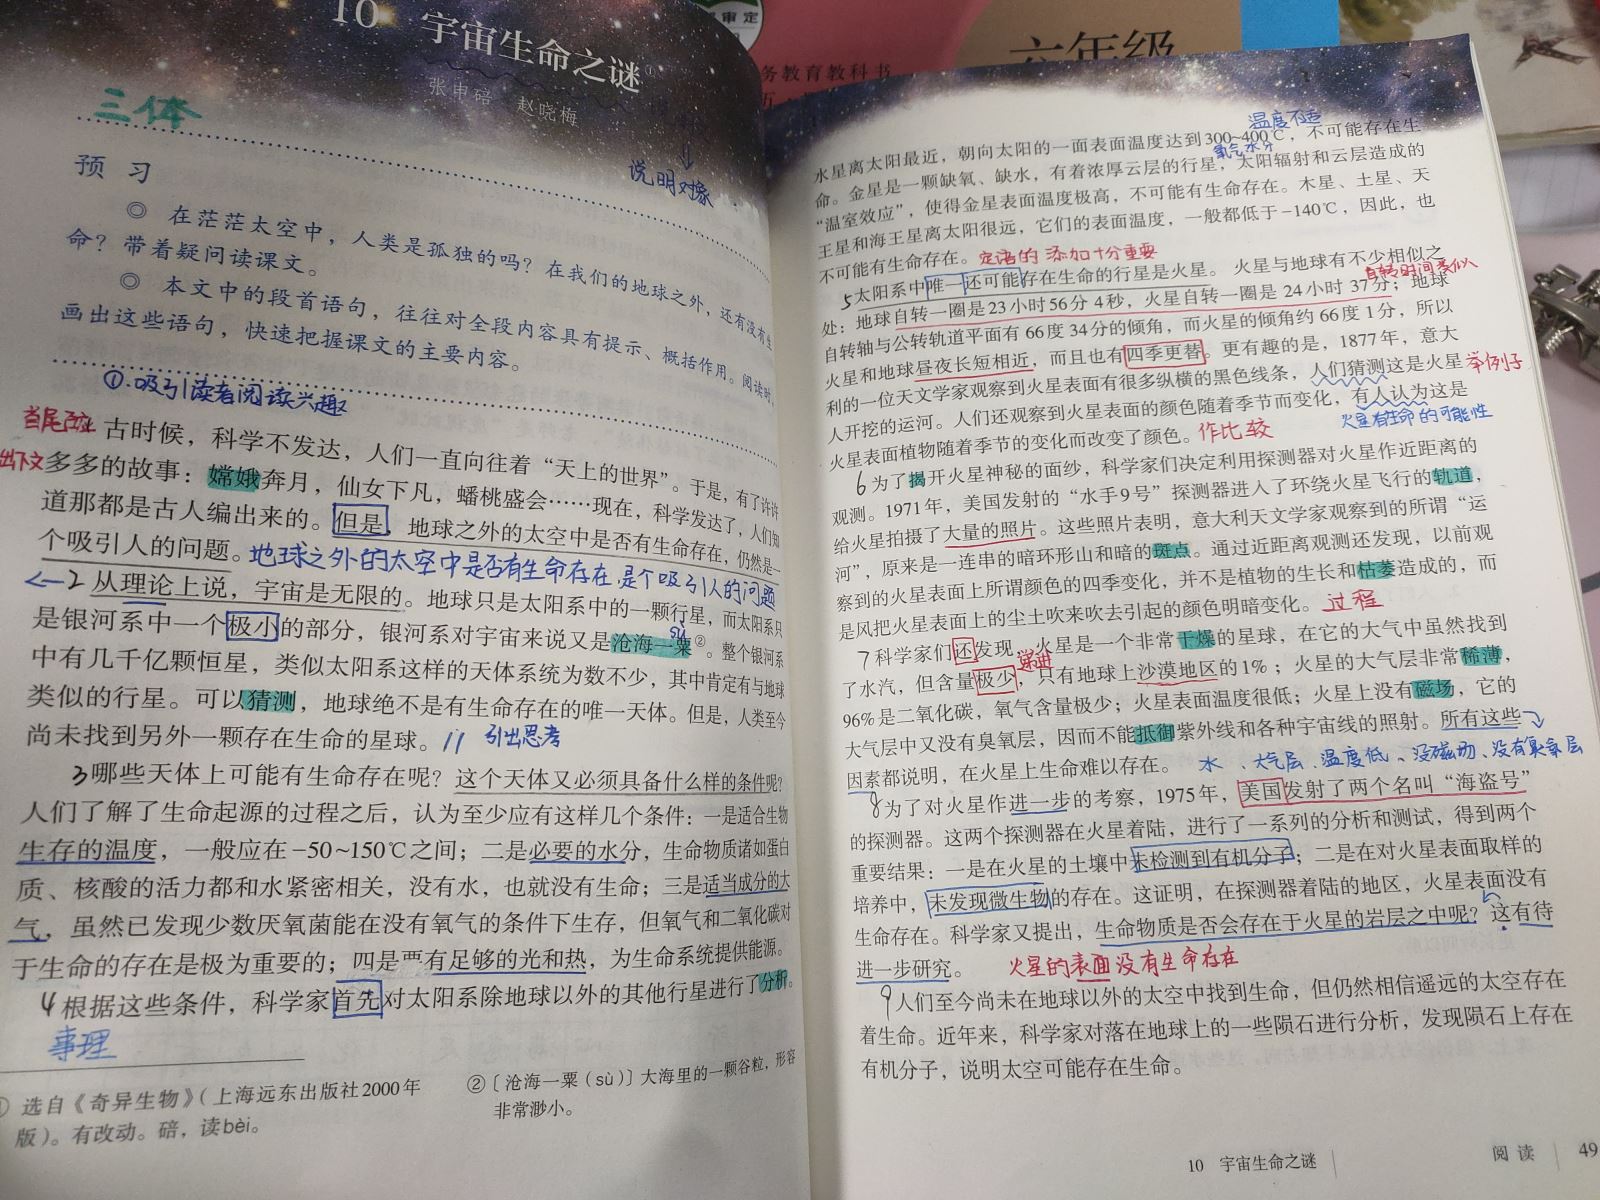 10 宇宙生命之谜①
张申碚 赵晓梅
三体
说明对象
预习
◎ 在茫茫太空中，人类是孤独的吗？在我们的地球之外，还有没有生
命？带着疑问读课文。
◎ 本文中的段首语句，往往对全段内容具有提示、概括作用。阅读时，
画出这些语句，快速把握课文的主要内容。
①吸引读者阅读兴趣
古时候，科学不发达，人们一直向往着“天上的世界”。于是，有了许许
出下文
多多的故事：嫦娥奔月，仙女下凡，蟠桃盛会……现在，科学发达了，人们知
道那都是古人编出来的。但是，地球之外的太空中是否有生命存在，仍然是一
个吸引人的问题。
地球之外的太空中是否有生命存在,是个吸引人的问题
2从理论上说，宇宙是无限的。地球只是太阳系中的一颗行星，而太阳系只
是银河系中一个极小的部分，银河系对宇宙来说又是沧海一粟②。整个银河系
sù
中有几千亿颗恒星，类似太阳系这样的天体系统为数不少，其中肯定有与地球
类似的行星。可以猜测，地球绝不是有生命存在的唯一天体。但是，人类至今
尚未找到另外一颗存在生命的星球。
引出思考
3哪些天体上可能有生命存在呢？这个天体又必须具备什么样的条件呢？
人们了解了生命起源的过程之后，认为至少应有这样几个条件：一是适合生物
生存的温度，一般应在－50~150℃之间；二是必要的水分，生命物质诸如蛋白
质、核酸的活力都和水紧密相关，没有水，也就没有生命；三是适当成分的大
气，虽然已发现少数厌氧菌能在没有氧气的条件下生存，但氧气和二氧化碳对
于生命的存在是极为重要的；四是要有足够的光和热，为生命系统提供能源。
4根据这些条件，科学家首先对太阳系除地球以外的其他行星进行了分析。
事理
① 选自《奇异生物》（上海远东出版社2000年
版）。有改动。碚，读bèi。
②〔沧海一粟（sù）〕大海里的一颗谷粒，形容
非常渺小。
审定
务教育教科书
六年级
温度不适
水星离太阳最近，朝向太阳的一面表面温度达到300~400℃，不可能存在生
氧气水分
命。金星是一颗缺氧、缺水，有着浓厚云层的行星，太阳辐射和云层造成的
“温室效应”，使得金星表面温度极高，不可能有生命存在。木星、土星、天
王星和海王星离太阳很远，它们的表面温度，一般都低于－140℃，因此，也
不可能有生命存在。
定语的添加十分重要
5太阳系中唯一还可能存在生命的行星是火星。火星与地球有不少相似之
自转时间类似
处：地球自转一圈是23小时56分4秒，火星自转一圈是24小时37分；地球
自转轴与公转轨道平面有66度34分的倾角，而火星的倾角约66度1分，所以
火星和地球昼夜长短相近，而且也有四季更替。更有趣的是，1877年，意大
利的一位天文学家观察到火星表面有很多纵横的黑色线条，人们猜测这是火星
举例子
人开挖的运河。人们还观察到火星表面的颜色随着季节而变化，有人认为这是
火星有生命的可能性
火星表面植物随着季节的变化而改变了颜色。
作比较
6为了揭开火星神秘的面纱，科学家们决定利用探测器对火星作近距离的
观测。1971年，美国发射的“水手9号”探测器进入了环绕火星飞行的轨道，
给火星拍摄了大量的照片。这些照片表明，意大利天文学家观察到的所谓“运
河”，原来是一连串的暗环形山和暗的斑点。通过近距离观测还发现，以前观
察到的火星表面上所谓颜色的四季变化，并不是植物的生长和枯萎造成的，而
是风把火星表面上的尘土吹来吹去引起的颜色明暗变化。
过程
7科学家们还发现，火星是一个非常干燥的星球，在它的大气中虽然找到
递进
了水汽，但含量极少，只有地球上沙漠地区的1%；火星的大气层非常稀薄，
96%是二氧化碳，氧气含量极少；火星表面温度很低；火星上没有磁场，它的
大气层中又没有臭氧层，因而不能抵御紫外线和各种宇宙线的照射。所有这些
因素都说明，在火星上生命难以存在。
水、大气层、温度低、没磁场、没有臭氧层
8为了对火星作进一步的考察，1975年，美国发射了两个名叫“海盗号”
的探测器。这两个探测器在火星着陆，进行了一系列的分析和测试，得到两个
重要结果：一是在火星的土壤中未检测到有机分子；二是在对火星表面取样的
培养中，未发现微生物的存在。这证明，在探测器着陆的地区，火星表面没有
生命存在。科学家又提出，生命物质是否会存在于火星的岩层之中呢？这有待
进一步研究。
火星的表面没有生命存在
9人们至今尚未在地球以外的太空中找到生命，但仍然相信遥远的太空存在
着生命。近年来，科学家对落在地球上的一些陨石进行分析，发现陨石上存在
有机分子，说明太空可能存在生命。
10 宇宙生命之谜
阅读 49